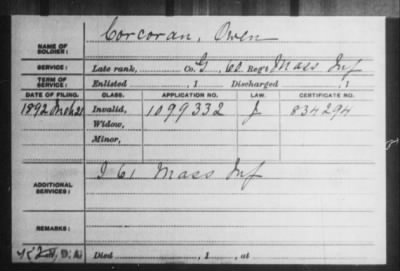 NAME OF SOLDIER: Corcoran, Owen
SERVICE: Late rank, Co. G, 62 Reg't Mass Inf
TERM OF SERVICE: Enlisted , 1 Discharged , 1
DATE OF FILING. CLASS. APPLICATION NO. LAW. CERTIFICATE NO.
1892 Mch 21 Invalid, 1099332 J 834294
Widow,
Minor,
ADDITIONAL SERVICES: I 61 Mass Inf
REMARKS:
Died , 1 , at